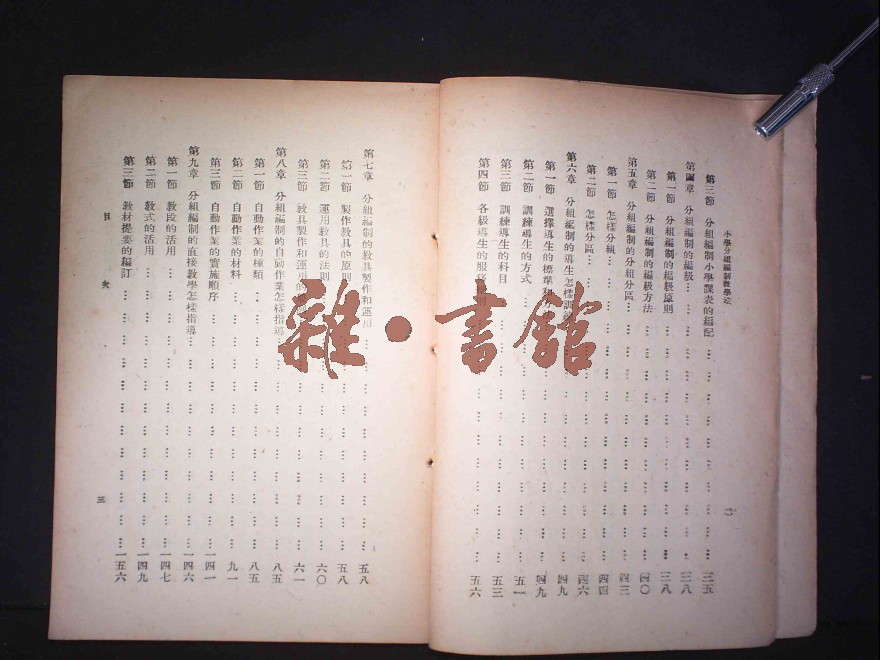 小學分組編制教學法
第三節 分組編制小學課表的編配 三五
第四章 分組編制的編級 三八
第一節 分組編制的編級原則 三八
第二節 分組編制的編級方法 四〇
第五章 分組編制的分組分區 四三
第一節 怎樣分組 四四
第二節 怎樣分區 四六
第六章 分組編制的導生怎樣訓練 四九
第一節 選擇導生的標準和 四九
第二節 訓練導生的方式 五一
第三節 訓練導生的科目 五三
第四節 各級導生的服務 則 五六
二
第七章 分組編制的教具製作和運用 五八
第一節 製作教具的原則 五八
第二節 運用教具的法則 六〇
第三節 教具製作和運用的 六一
第八章 分組編制的自動作業怎樣指導 八五
第一節 自動作業的種類 八五
第二節 自動作業的材料 九一
第三節 自動作業的實施順序 一四一
第九章 分組編制的直接教學怎樣指導 一四六
第一節 教段的活用 一四七
第二節 教式的活用 一四九
第三節 教材提要的編訂 一五六
目次
三
雜·書館